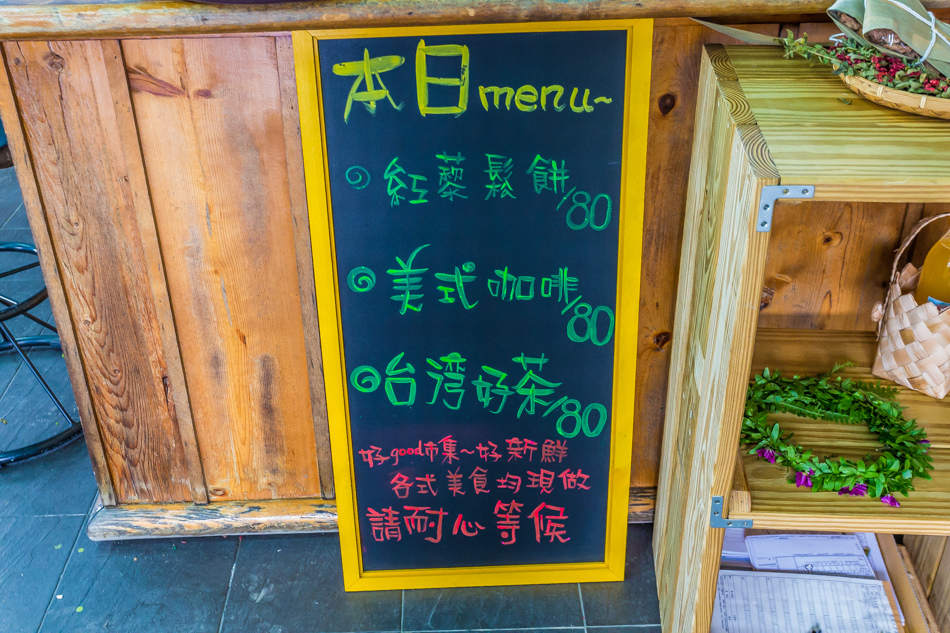 本日menu~
紅藜鬆餅/80
美式咖啡/80
台湾好茶/80
好good市集~好新鮮
各式美食均現做
請耐心等候